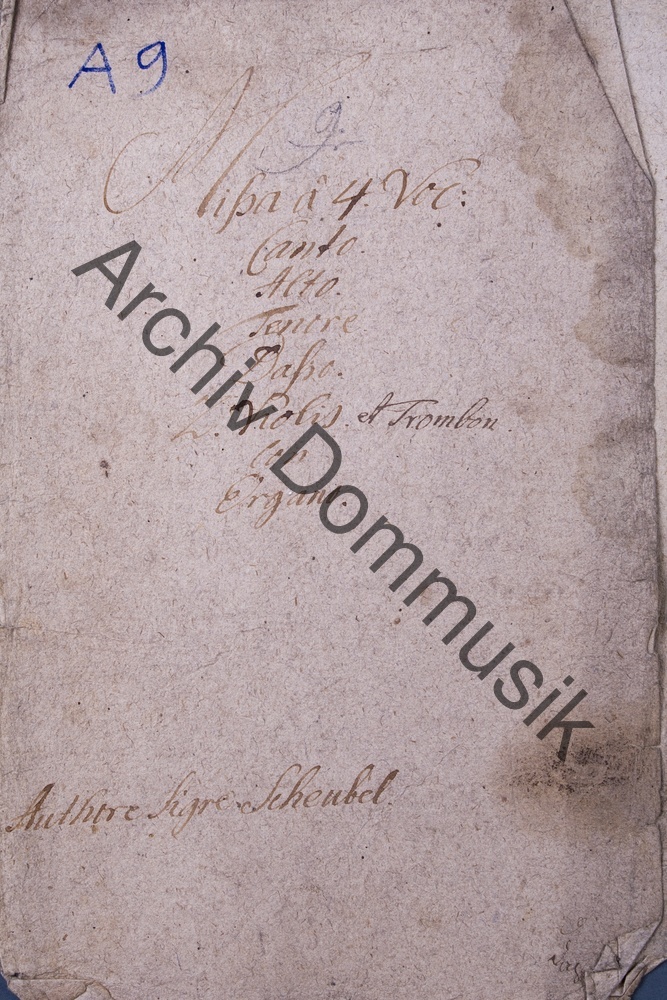 A 9
9.
Mißa â 4. Voc:
Canto.
Alto.
Tenore
Baßo.
2. Violis. et Trombon.
Con
Organo.
Authore Sigre Scheubel.
Archiv Dommusik